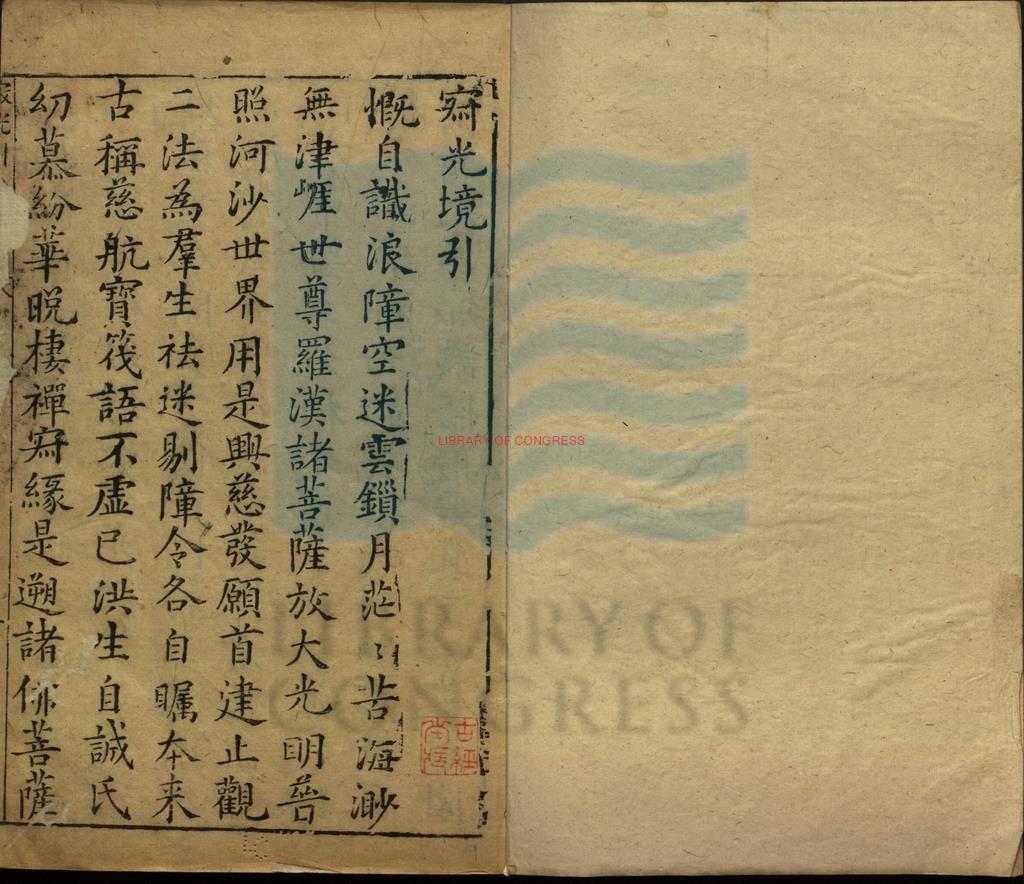 寂光境引
慨自識浪障空迷雲鎖月茫〻苦海渺
無津崖世尊羅漢諸菩薩放大光明普
照河沙世界用是興慈發願首建止觀
二法為羣生祛迷剔障令各自矚本来
古稱慈航寶筏語不虛已洪生自誠氏
幼慕紛華晩棲禪寂緣是遡諸佛菩薩
LIBRARY OF CONGRESS
LIBRARY OF
CONGRESS